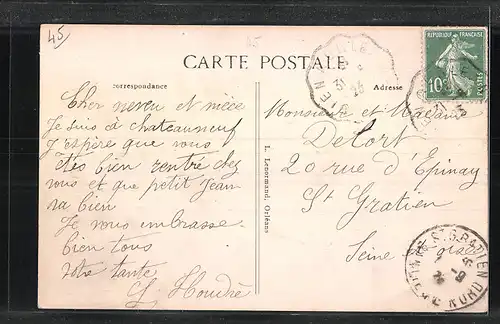 45
CARTE POSTALE
Correspondance
Adresse
REPUBLIQUE FRANÇAISE
10c
POSTES
Cher neveu et nièce
Je suis à chateauneuf
J'espère que vous
êtes bien rentré chez
vous et que petit Jean
va bien
Je vous embrasse
bien tous
votre tante
L. Houdré
L. Lenormand, Orléans
Monsieur et Madame
Delort
20 rue d'Epinay
St Gratien
Seine et oise
ST GRATIEN